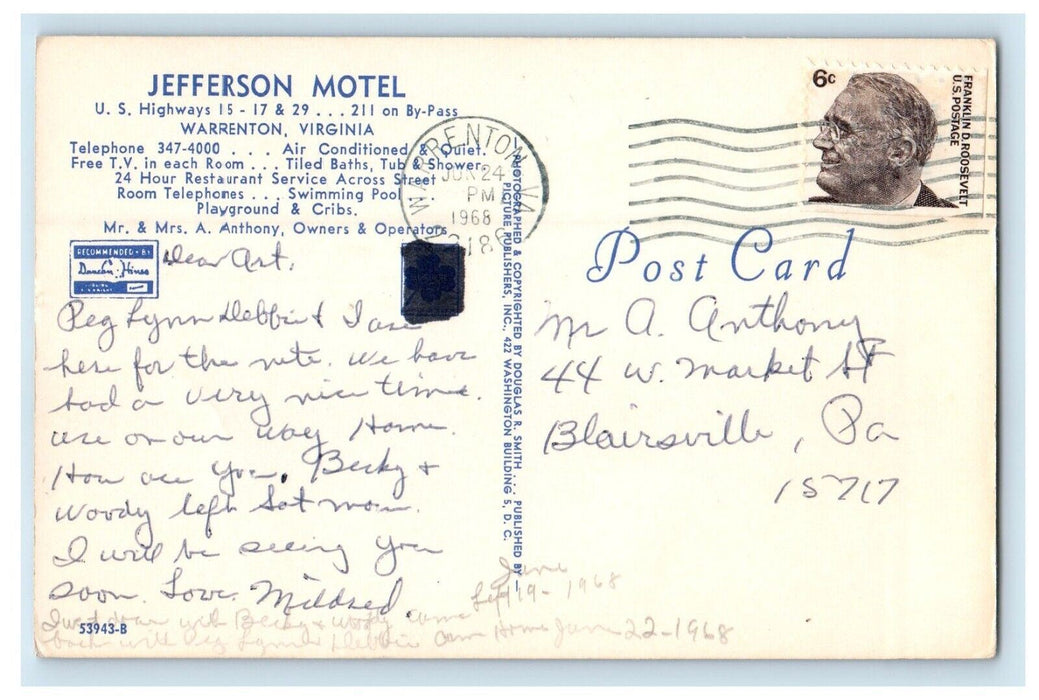 JEFFERSON MOTEL
U. S. Highways 15 - 17 & 29 . . . 211 on By-Pass
WARRENTON, VIRGINIA
Telephone 347-4000 . . . Air Conditioned & Quiet.
Free T.V. in each Room . . . Tiled Baths, Tub & Shower.
24 Hour Restaurant Service Across Street
Room Telephones . . . Swimming Pool
Playground & Cribs.
Mr. & Mrs. A. Anthony, Owners & Operators
RECOMMENDED BY
Duncan Hines
Dear Art,
Peg Lynn Debbie & I are
here for the nite. We have
had a very nice time.
are on our way Home.
How are you. Becky +
Woody left Sat morn.
I will be seeing you
soon. Love. Mildred.
I went down with Becky + Woody came
back with Peg Lynn + Debbie
53943-B
June
Left 19 - 1968
Home June 22-1968
PHOTOGRAPHED & COPYRIGHTED BY DOUGLAS R. SMITH . . . PUBLISHED BY —
PICTURE PUBLISHERS, INC., 422 WASHINGTON BUILDING 5, D. C.
WARRENTON
JUN 24
PM
1968
6c
FRANKLIN D. ROOSEVELT
U.S. POSTAGE
Post Card
Mr A. Anthony
44 W. Market St
Blairsville, Pa
15717